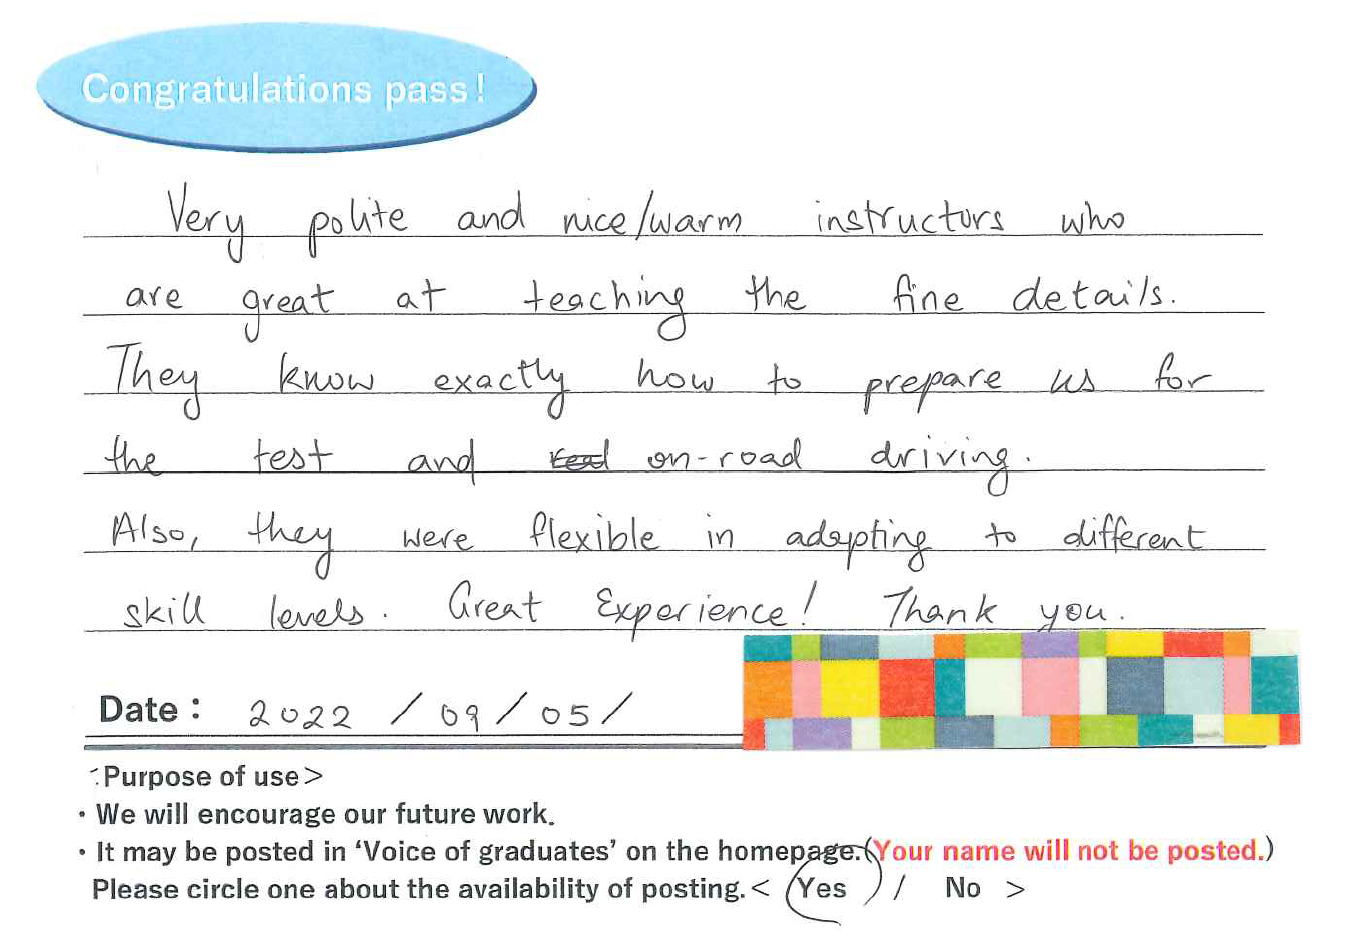 Congratulations pass!
Very polite and nice/warm instructors who
are great at teaching the fine details.
They know exactly how to prepare us for
the test and on-road driving.
Also, they were flexible in adapting to different
skill levels. Great Experience! Thank you.
Date : 2022 / 09 / 05 /
Purpose of use>
・We will encourage our future work.
・It may be posted in ‘Voice of graduates’ on the homepage.(Your name will not be posted.)
Please circle one about the availability of posting.< Yes / No >